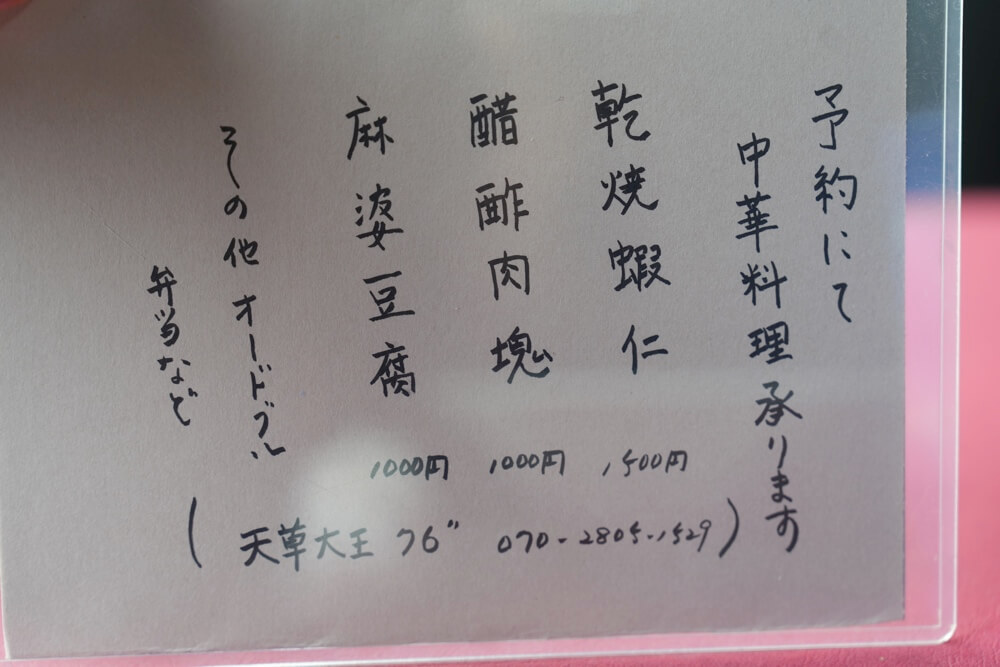 予約にて
中華料理承ります
乾焼蝦仁 1500円
醋酢肉塊 1000円
麻婆豆腐 1000円
その他オードブル
弁当など
(天草大王 76" 070-2805-1529)